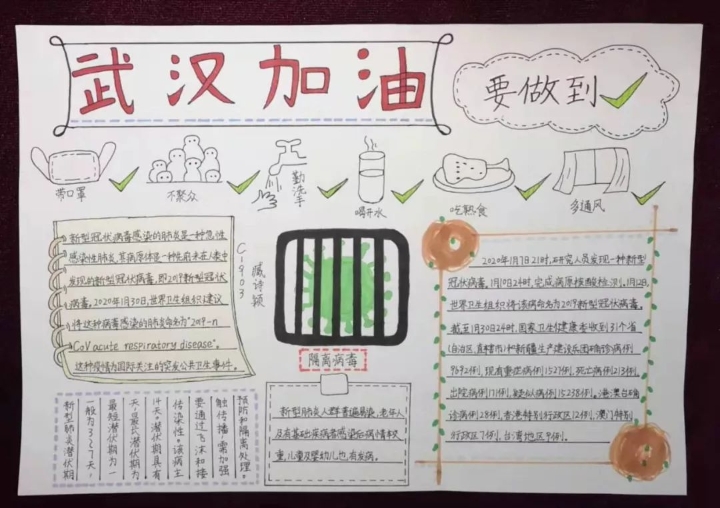 武汉加油
要做到
带口罩
不聚众
勤洗手
喝开水
吃熟食
多通风
新型冠状病毒感染的肺炎是一种急性
感染性肺炎,其病原体是一种先前未在人类中
发现的新型冠状病毒,即2019新型冠状
病毒。2020年1月30日,世界卫生组织建议
将这种病毒感染的肺炎命名为"2019-n
CoV acute respiratory disease".
这种疫情为国际关注的突发公共卫生事件。
C1903
臧诗颖
隔离病毒
2020年1月7日21时,研究人员发现一种新型
冠状病毒,1月10日24时,完成病原核酸检测。1月12日,
世界卫生组织将该病命名为2019新型冠状病毒。
截至1月30日24时,国家卫生健康委收到31个省
(自治区、直辖市)和新疆生产建设兵团确诊病例
9692例,现有重症病例1527例,死亡病例213例,
出院病例171例,疑似病例15238例。港澳台确
诊病例28例,香港特别行政区12例,澳门特别
行政区7例,台湾地区9例。
新型肺炎潜伏期
一般为3~7天,
最短潜伏期为一
天,最长潜伏期为
14天。潜伏期具有
传染性。该病主
要通过飞沫和接
触传播,需加强
预防和隔离处理。
新型肺炎人群普遍易染,老年人
及有基础疾病者感染后病情较
重,儿童及婴幼儿也有发病。